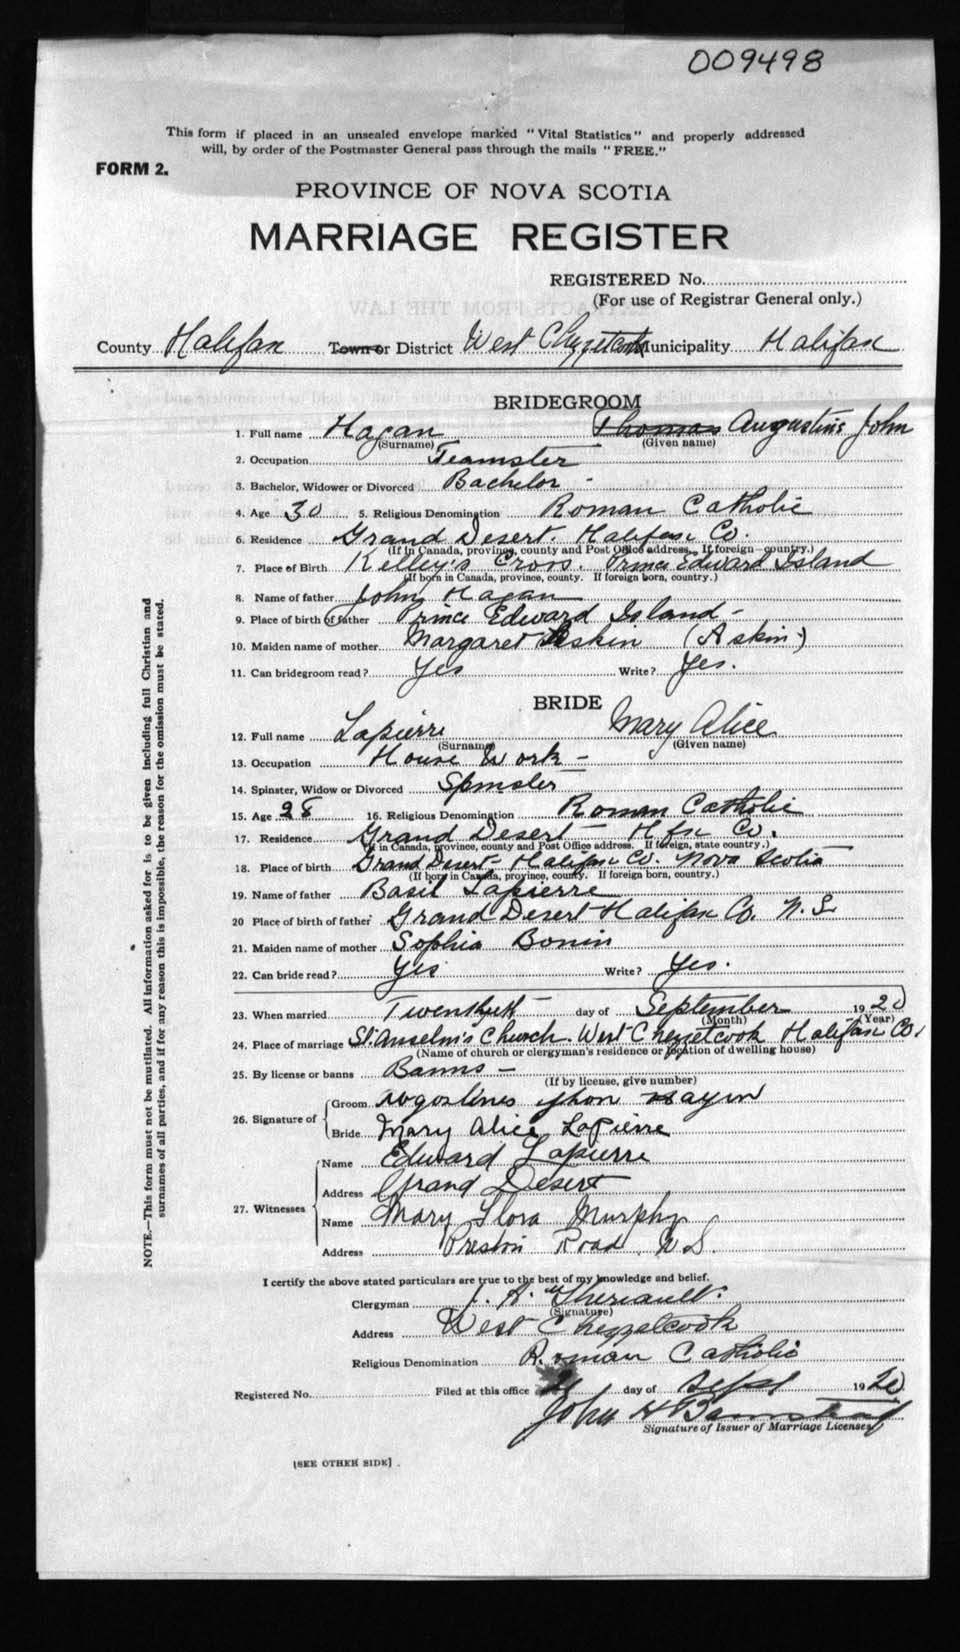 009498
This form if placed in an unsealed envelope marked "Vital Statistics" and properly addressed
will, by order of the Postmaster General pass through the mails "FREE."
FORM 2.
PROVINCE OF NOVA SCOTIA
MARRIAGE REGISTER
REGISTERED No.
(For use of Registrar General only.)
County Halifax Town or District West Chezzetcook Municipality Halifax
BRIDEGROOM
1. Full name Hagan Thomas Augustine John
(Surname) (Given name)
2. Occupation Teamster
3. Bachelor, Widower or Divorced Bachelor -
4. Age 30 5. Religious Denomination Roman Catholic
6. Residence Grand Desert. Halifax Co.
(If in Canada, province, county and Post Office address. If foreign country.)
7. Place of Birth Kelley's Cross. Prince Edward Island
(If born in Canada, province, county. If foreign born, country.)
8. Name of father John Hagan
9. Place of birth of father Prince Edward Island -
10. Maiden name of mother Margaret Askin (Askin)
11. Can bridegroom read? Yes Write? Yes.
BRIDE
12. Full name Lapierre Mary Alice
(Surname) (Given name)
13. Occupation House Work -
14. Spinster, Widow or Divorced Spinster
15. Age 28 16. Religious Denomination Roman Catholic
17. Residence Grand Desert - Hfx Co.
(If in Canada, province, county and Post Office address. If foreign, state country.)
18. Place of birth Grand Desert - Halifax Co. Nova Scotia
(If born in Canada, province, county. If foreign born, country.)
19. Name of father Basil Lapierre
20 Place of birth of father Grand Desert Halifax Co. N.S.
21. Maiden name of mother Sophia Bonin
22. Can bride read? Yes Write? Yes.
23. When married day of September 1920
(Month) (Year)
24. Place of marriage St. Anselm's Church. West Chezzetcook Halifax Co.
(Name of church or clergyman's residence or location of dwelling house)
25. By license or banns Banns -
(If by license, give number)
26. Signature of Groom
Bride Mary Alice LaPierre
27. Witnesses Name Edward Lapierre
Address Grand Desert
Name Mary Flora Murphy
Address Preston Road N.S.
I certify the above stated particulars are true to the best of my knowledge and belief.
Clergyman J. A. Theriault.
(Signature)
Address West Chezzetcook
Religious Denomination Roman Catholic
Registered No. Filed at this office day of Sept 1920
John H
Signature of Issuer of Marriage Licenses
[SEE OTHER SIDE].
NOTE.—This form must not be mutilated. All information asked for is to be given including full Christian and
surnames of all parties, and if for any reason this is impossible, the reason for the omission must be stated.